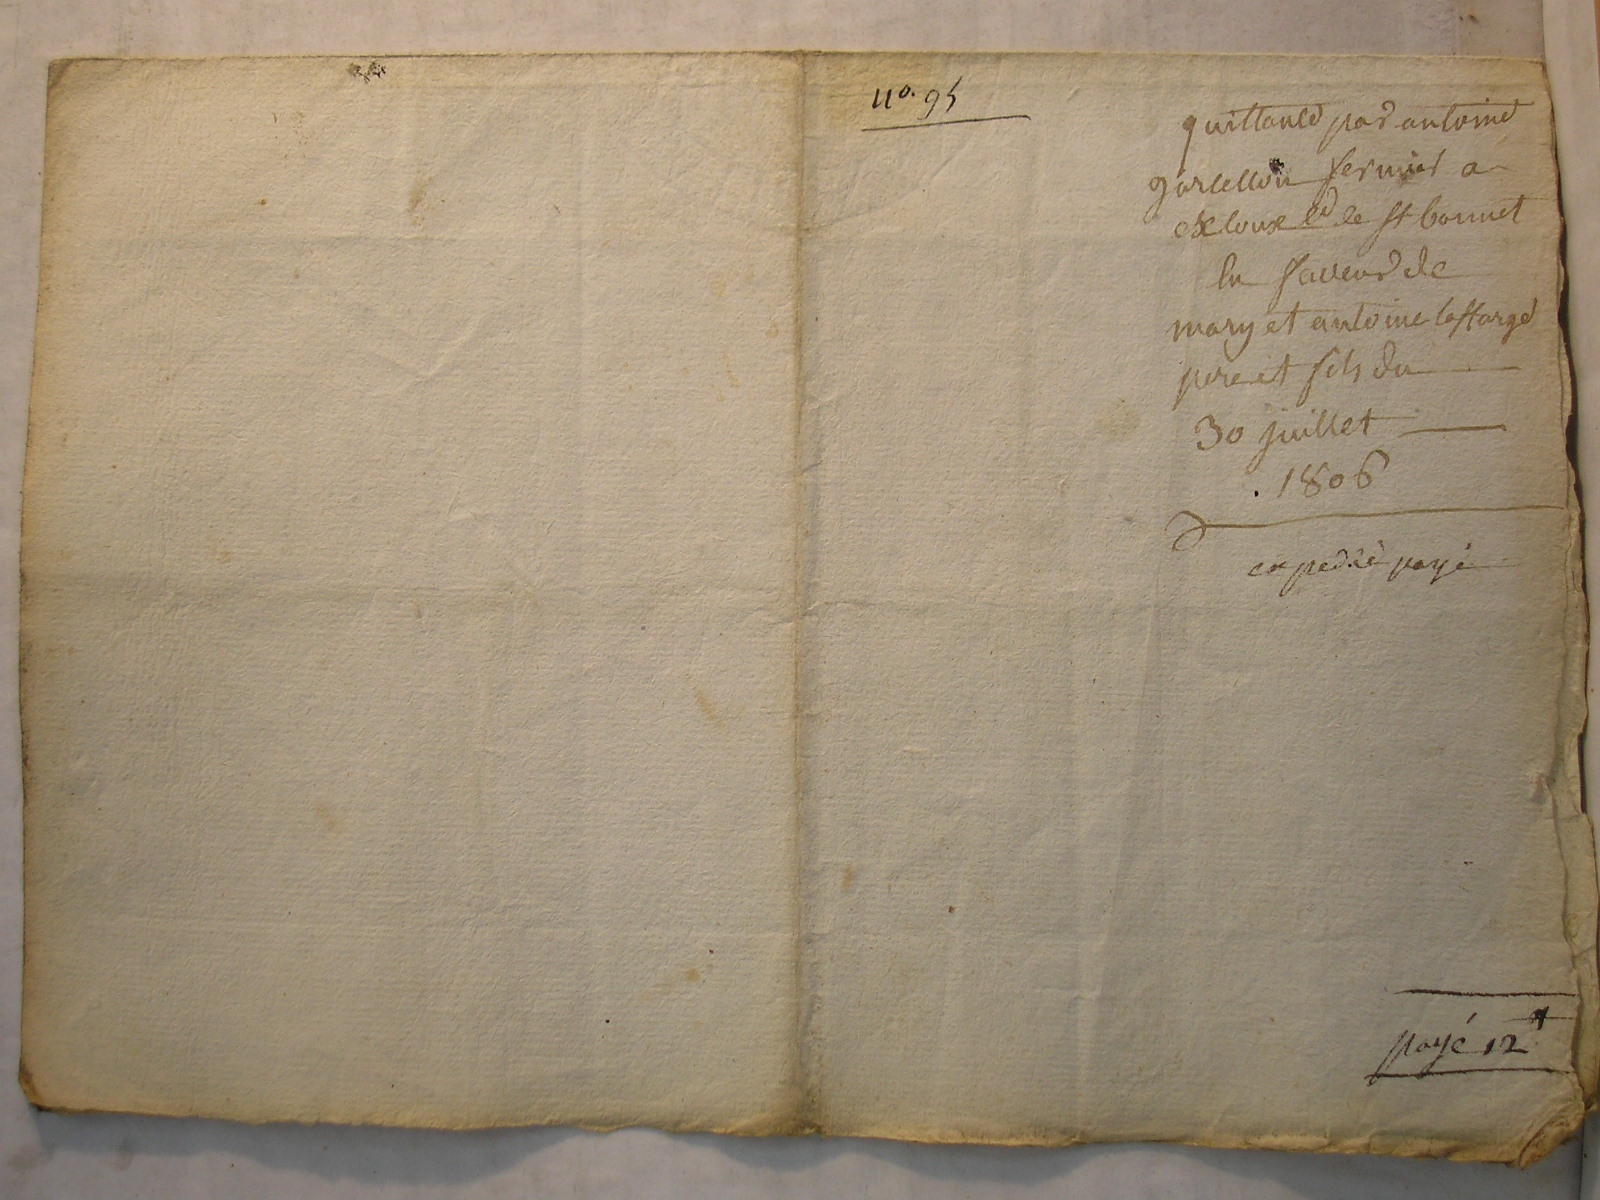 no. 95
quittance par antoine
fermier a
de st bonnet
en faveur de
mary et antoine laffarge
pere et fils du
30 juillet
1806
expedié payé
payé 12